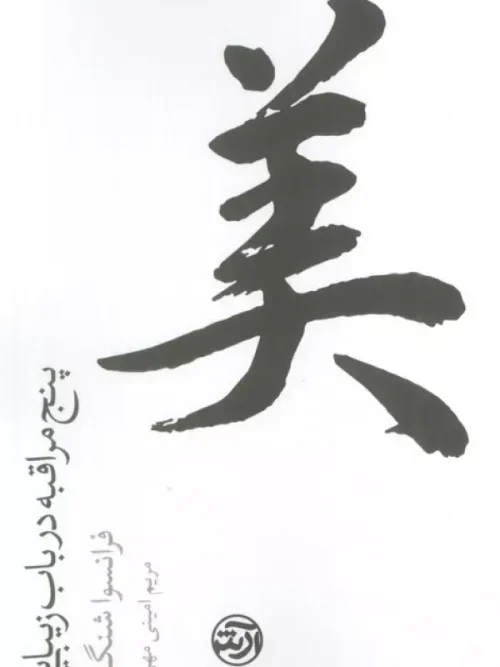 美
پنج مراقبه در باب زیبایی
فرانسوا شنگ
مریم امینی